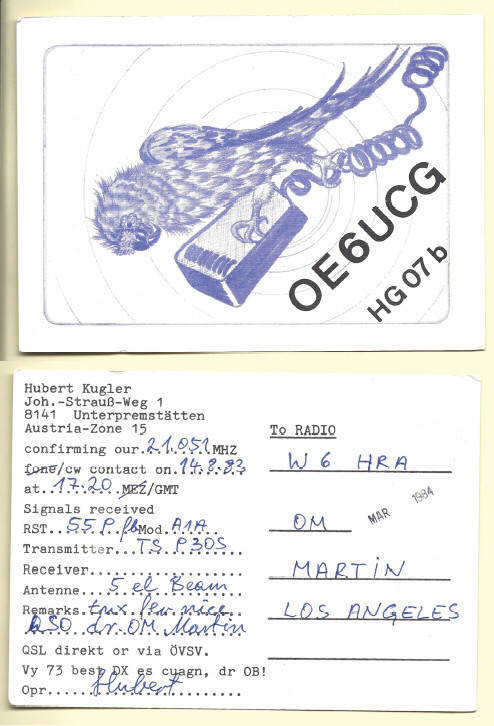 OE6UCG
HG07b
Hubert Kugler
Joh.-Strauß-Weg 1
8141 Unterpremstätten
Austria-Zone 15
confirming our 21.051 MHZ
fone/cw contact on 14.8.83
at 17.20 MEZ/GMT
Signals received
RST 55 P. fb Mod. A1A
Transmitter TS. P30S
Receiver
Antenne 5 el Beam
Remarks tnx fer nice
QSO dr. OM Martin
QSL direkt or via ÖVSV.
Vy 73 best DX es cuagn, dr OB!
Opr. Hubert
To RADIO
W6 HRA
OM
MAR 1984
MARTIN
LOS ANGELES